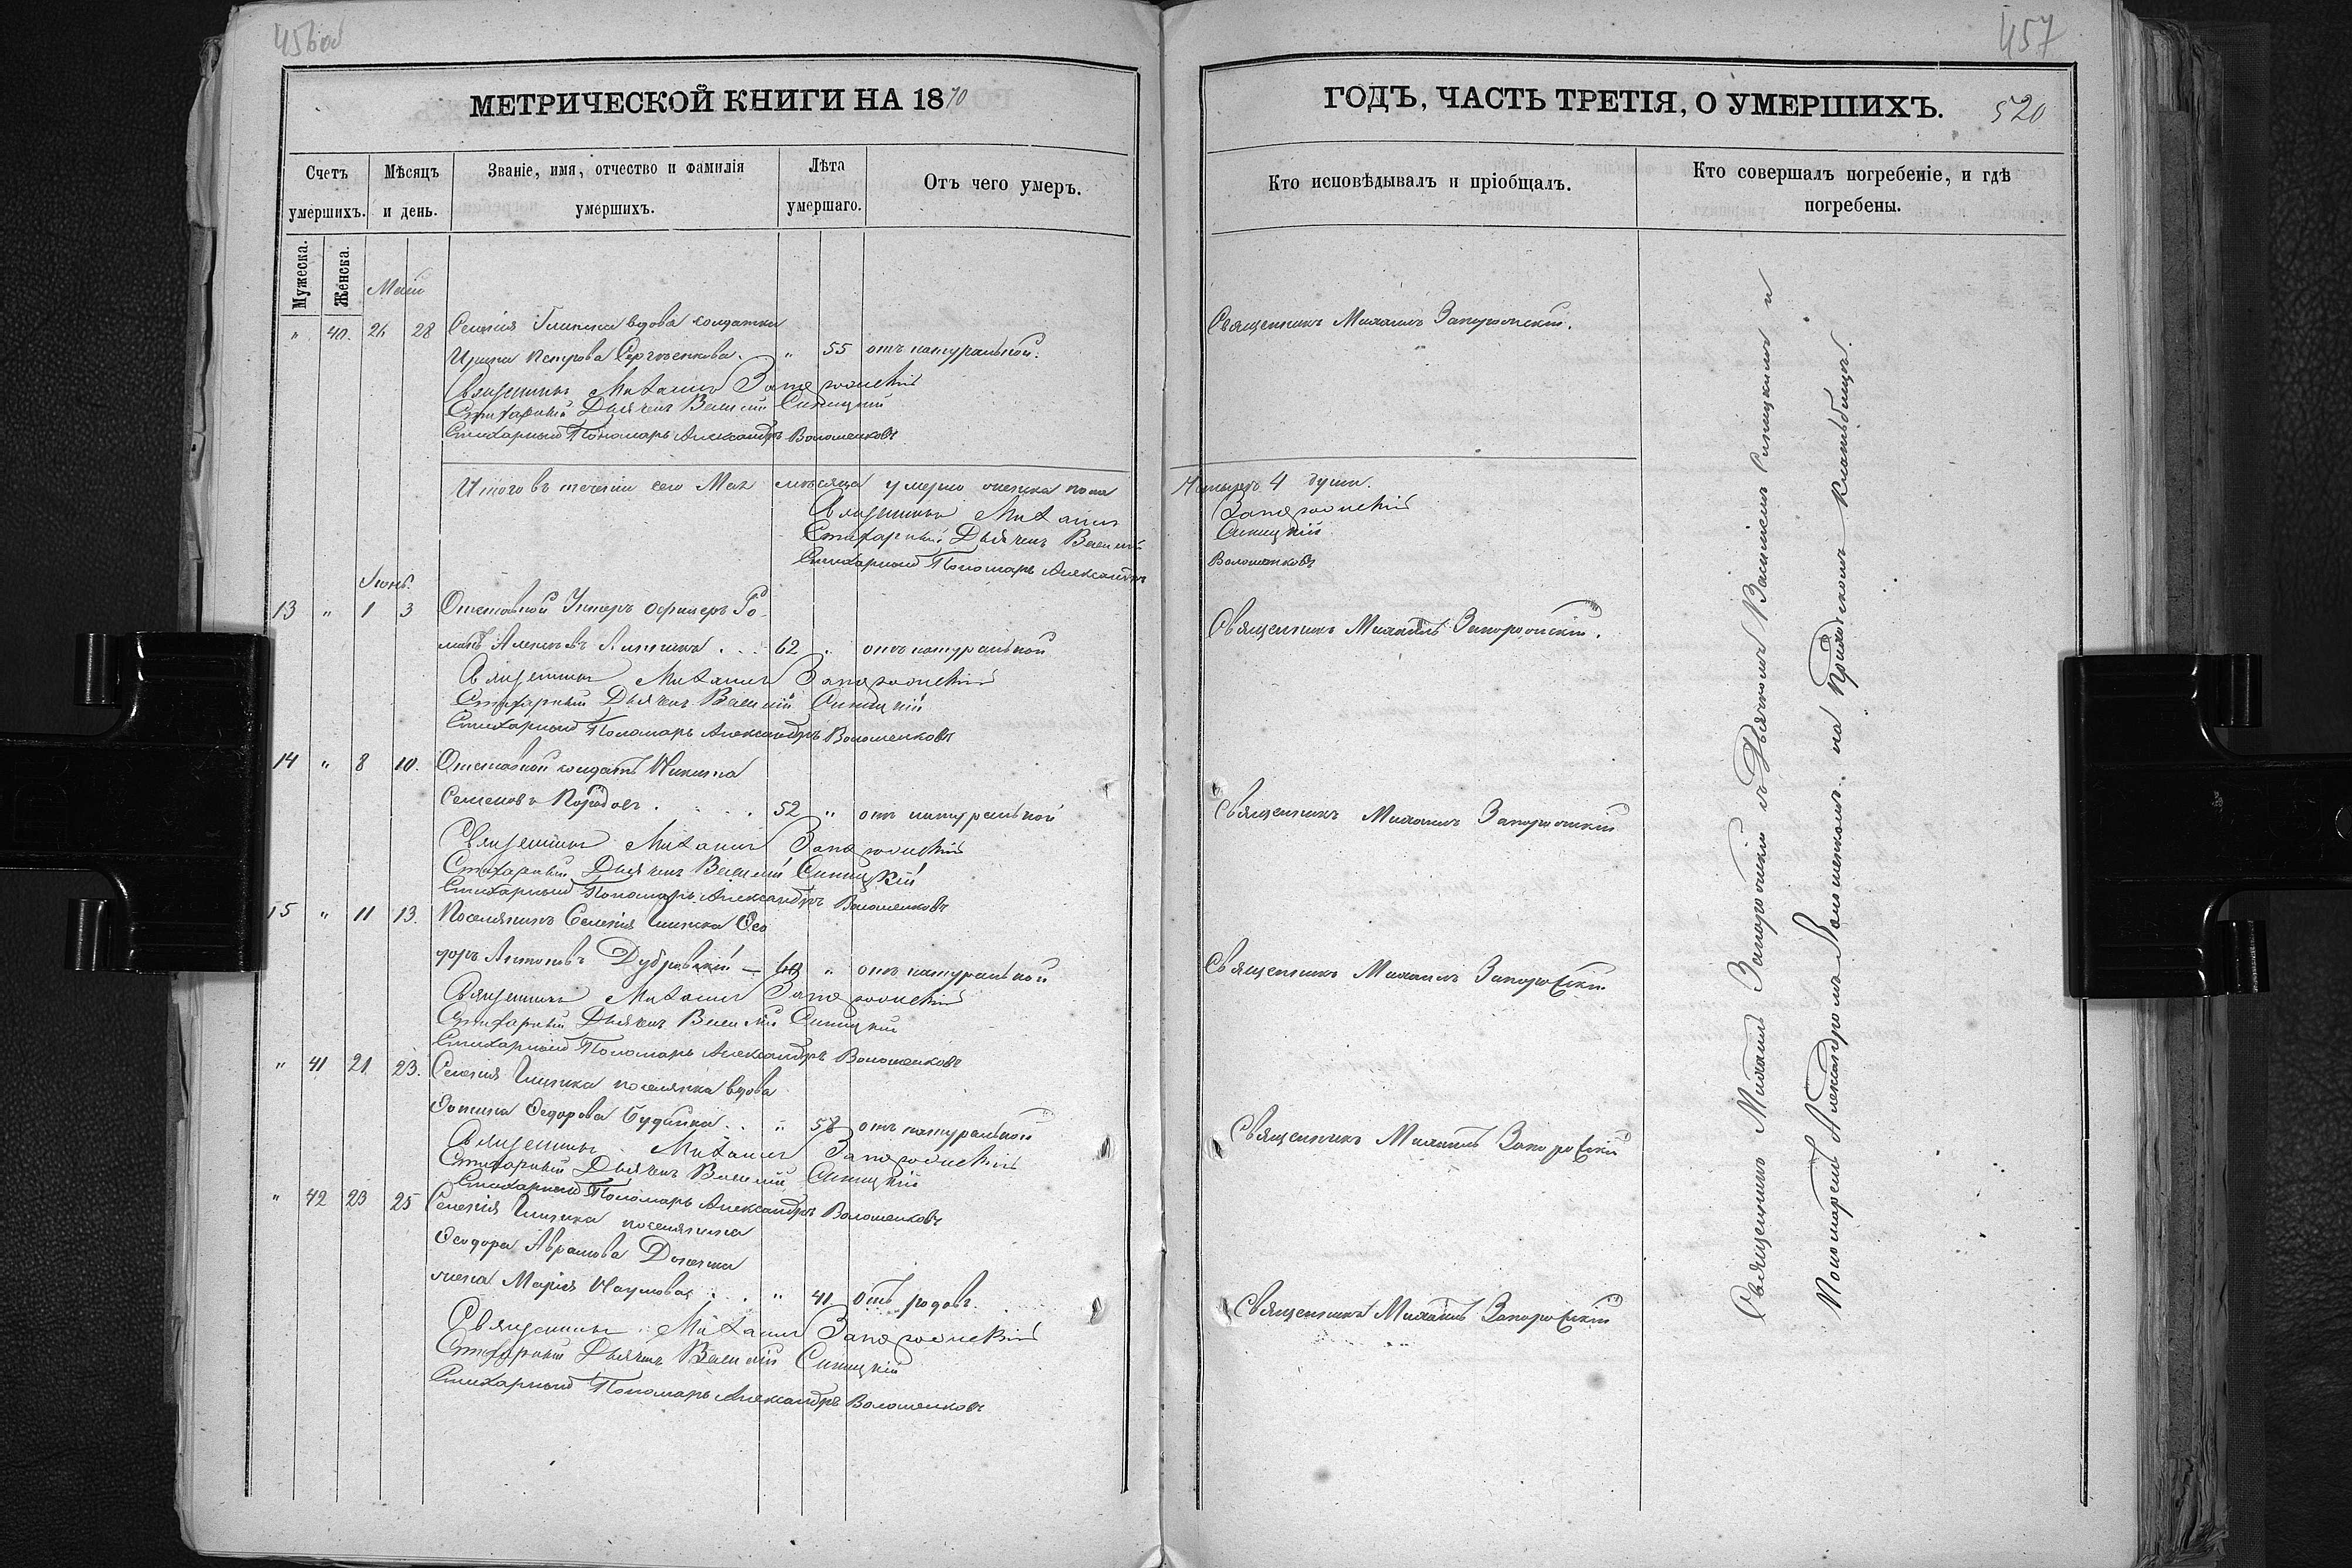 456об
457
МЕТРИЧЕСКОЙ КНИГИ НА 1870
ГОДЪ, ЧАСТЬ ТРЕТІЯ, О УМЕРШИХЪ. 520
Счетъ умершихъ.
Мѣсяцъ и день.
Званіе, имя, отчество и фамилія умершихъ.
Лѣта умершаго.
Отъ чего умеръ.
Кто исповѣдывалъ и пріобщалъ.
Кто совершалъ погребеніе, и гдѣ погребены.
Мужеска.
Женска.
Май
" 40. 26 28 Селенія Глинска вдова солдатка
Ирина Петрова Сергѣенкова. " 55 отъ натуральной.
Священникъ Михаилъ Запорожскій.
Священникъ Михаилъ Запорожскій
Стихарный Дьячекъ Василій Синицкій
Стихарный Пономарь Александръ Волошенковъ
Итого въ теченіи сего Мая мѣсяца умерло женска пола
4 души.
Священникъ Михаилъ Запорожскій
Стихарный Дьячекъ Василій Синицкій
Стихарный Пономарь Александръ Волошенковъ
Іюнь.
13 " 1 3 Отставной Унтеръ офицеръ Ро-
манъ . . . 62 " отъ натуральной
Священникъ Михаилъ Запорожскій.
Священникъ Михаилъ Запорожскій
Стихарный Дьячекъ Василій Синицкій
Стихарный Пономарь Александръ Волошенковъ
14 " 8 10. Отставной солдатъ Никита
Семеновъ . . . . 52 " отъ натуральной
Священникъ Михаилъ Запорожскій
Священникъ Михаилъ Запорожскій
Стихарный Дьячекъ Василій Синицкій
Стихарный Пономарь Александръ Волошенковъ
15 " 11 13. Поселянинъ Селенія Глинска Ѳео
доръ Антоновъ Дубровскій — " отъ натуральной
Священникъ Михаилъ Запорожскій
Священникъ Михаилъ Запорожскій
Стихарный Дьячекъ Василій Синицкій
Стихарный Пономарь Александръ Волошенковъ
" 41 21 23. Селенія Глинска поселянка вдова
Ѳедорова . . " 58 отъ натуральной
Священникъ Михаилъ Запорожскій
Священникъ Михаилъ Запорожскій
Стихарный Дьячекъ Василій Синицкій
Стихарный Пономарь Александръ Волошенковъ
" 42 23 25 Селенія Глинска поселянина
Ѳеодора Аврамова
жена Марія Наумова . . " 41 отъ родовъ.
Священникъ Михаилъ Запорожскій
Священникъ Михаилъ Запорожскій
Стихарный Дьячекъ Василій Синицкій
Стихарный Пономарь Александръ Волошенковъ
Священникъ Михаилъ Запорожскій съ Дьячкомъ Василіемъ Синицкимъ и
Пономаремъ Александромъ Волошенкомъ. на Приходскомъ Кладбищѣ.